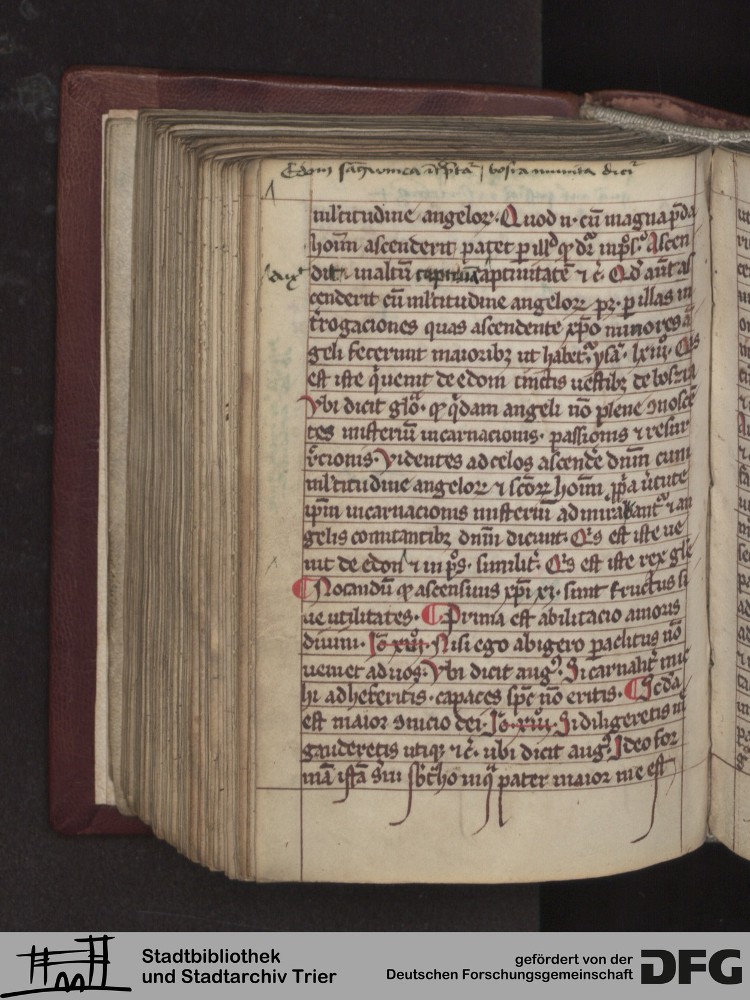 Edom sanguinea int̄p̄tat᷑ bosra munita dicit᷑
ml̓titudine angeloꝝ. Quod n. cū magna p̄da
hoīm ascenderit patet ꝑ illd̓ qͥ dr̄ in ps̓. Ascen
dit in altū captiuā captiuitatē ⁊ c̓. Qd̓ aūt as
cenderit cū ml̓titudine angeloꝝ pꝫ. ꝑ illas in
t̓rogaciones quas ascendente xp̄o minores ā
geli fecerunt maioribꝫ ut habet᷑ ysa. lxiii. Qͥs
est iste qͥ uenit de edom tinctis uestibꝫ de bosra
Vbi dicit glo. ꝙ qͥdam angeli nō plene noscē
tes misteriū incarnacionis. passionis ⁊ resur
r̓cionis. Videntes ad celos ascendē dn̄m cum
ml̓titudine angeloꝝ ⁊ sc̄oꝝ hoīm ꝓpͥa uͥtute
ip̄m incarnacionis misteriū admirabant᷑ ⁊ an
gelis comitantibꝫ dn̄m dicunt. Qͥs est iste ue
nit de edom ⁊ in ps̓. similit̓. Qͥs est iste rex gl̓e
Notandū ꝙ ascensiuis xp̄i xi. sunt fructus si
ue utilitates. Prima est abilitacio amoris
diuini. Jo xvi. Nisi ego abigero paclitus nō
ueniet ad uos. Vbi dicit aug᷒. Si carnalit̓ mi
hi adheseritis. capaces sp̄c nō eritis. Scd̓a
est maior nocio dei. Jo xiiii. Si diligeretis me
gauderetis utiqꝫ ⁊c̓. ubi dicit aug᷒. Ideo for
mā istā s̓ui sb̓tͣho in qͣ pater maior me est
Stadtbibliothek
und Stadtarchiv Trier
gefördert von der
Deutschen Forschungsgemeinschaft
DFG